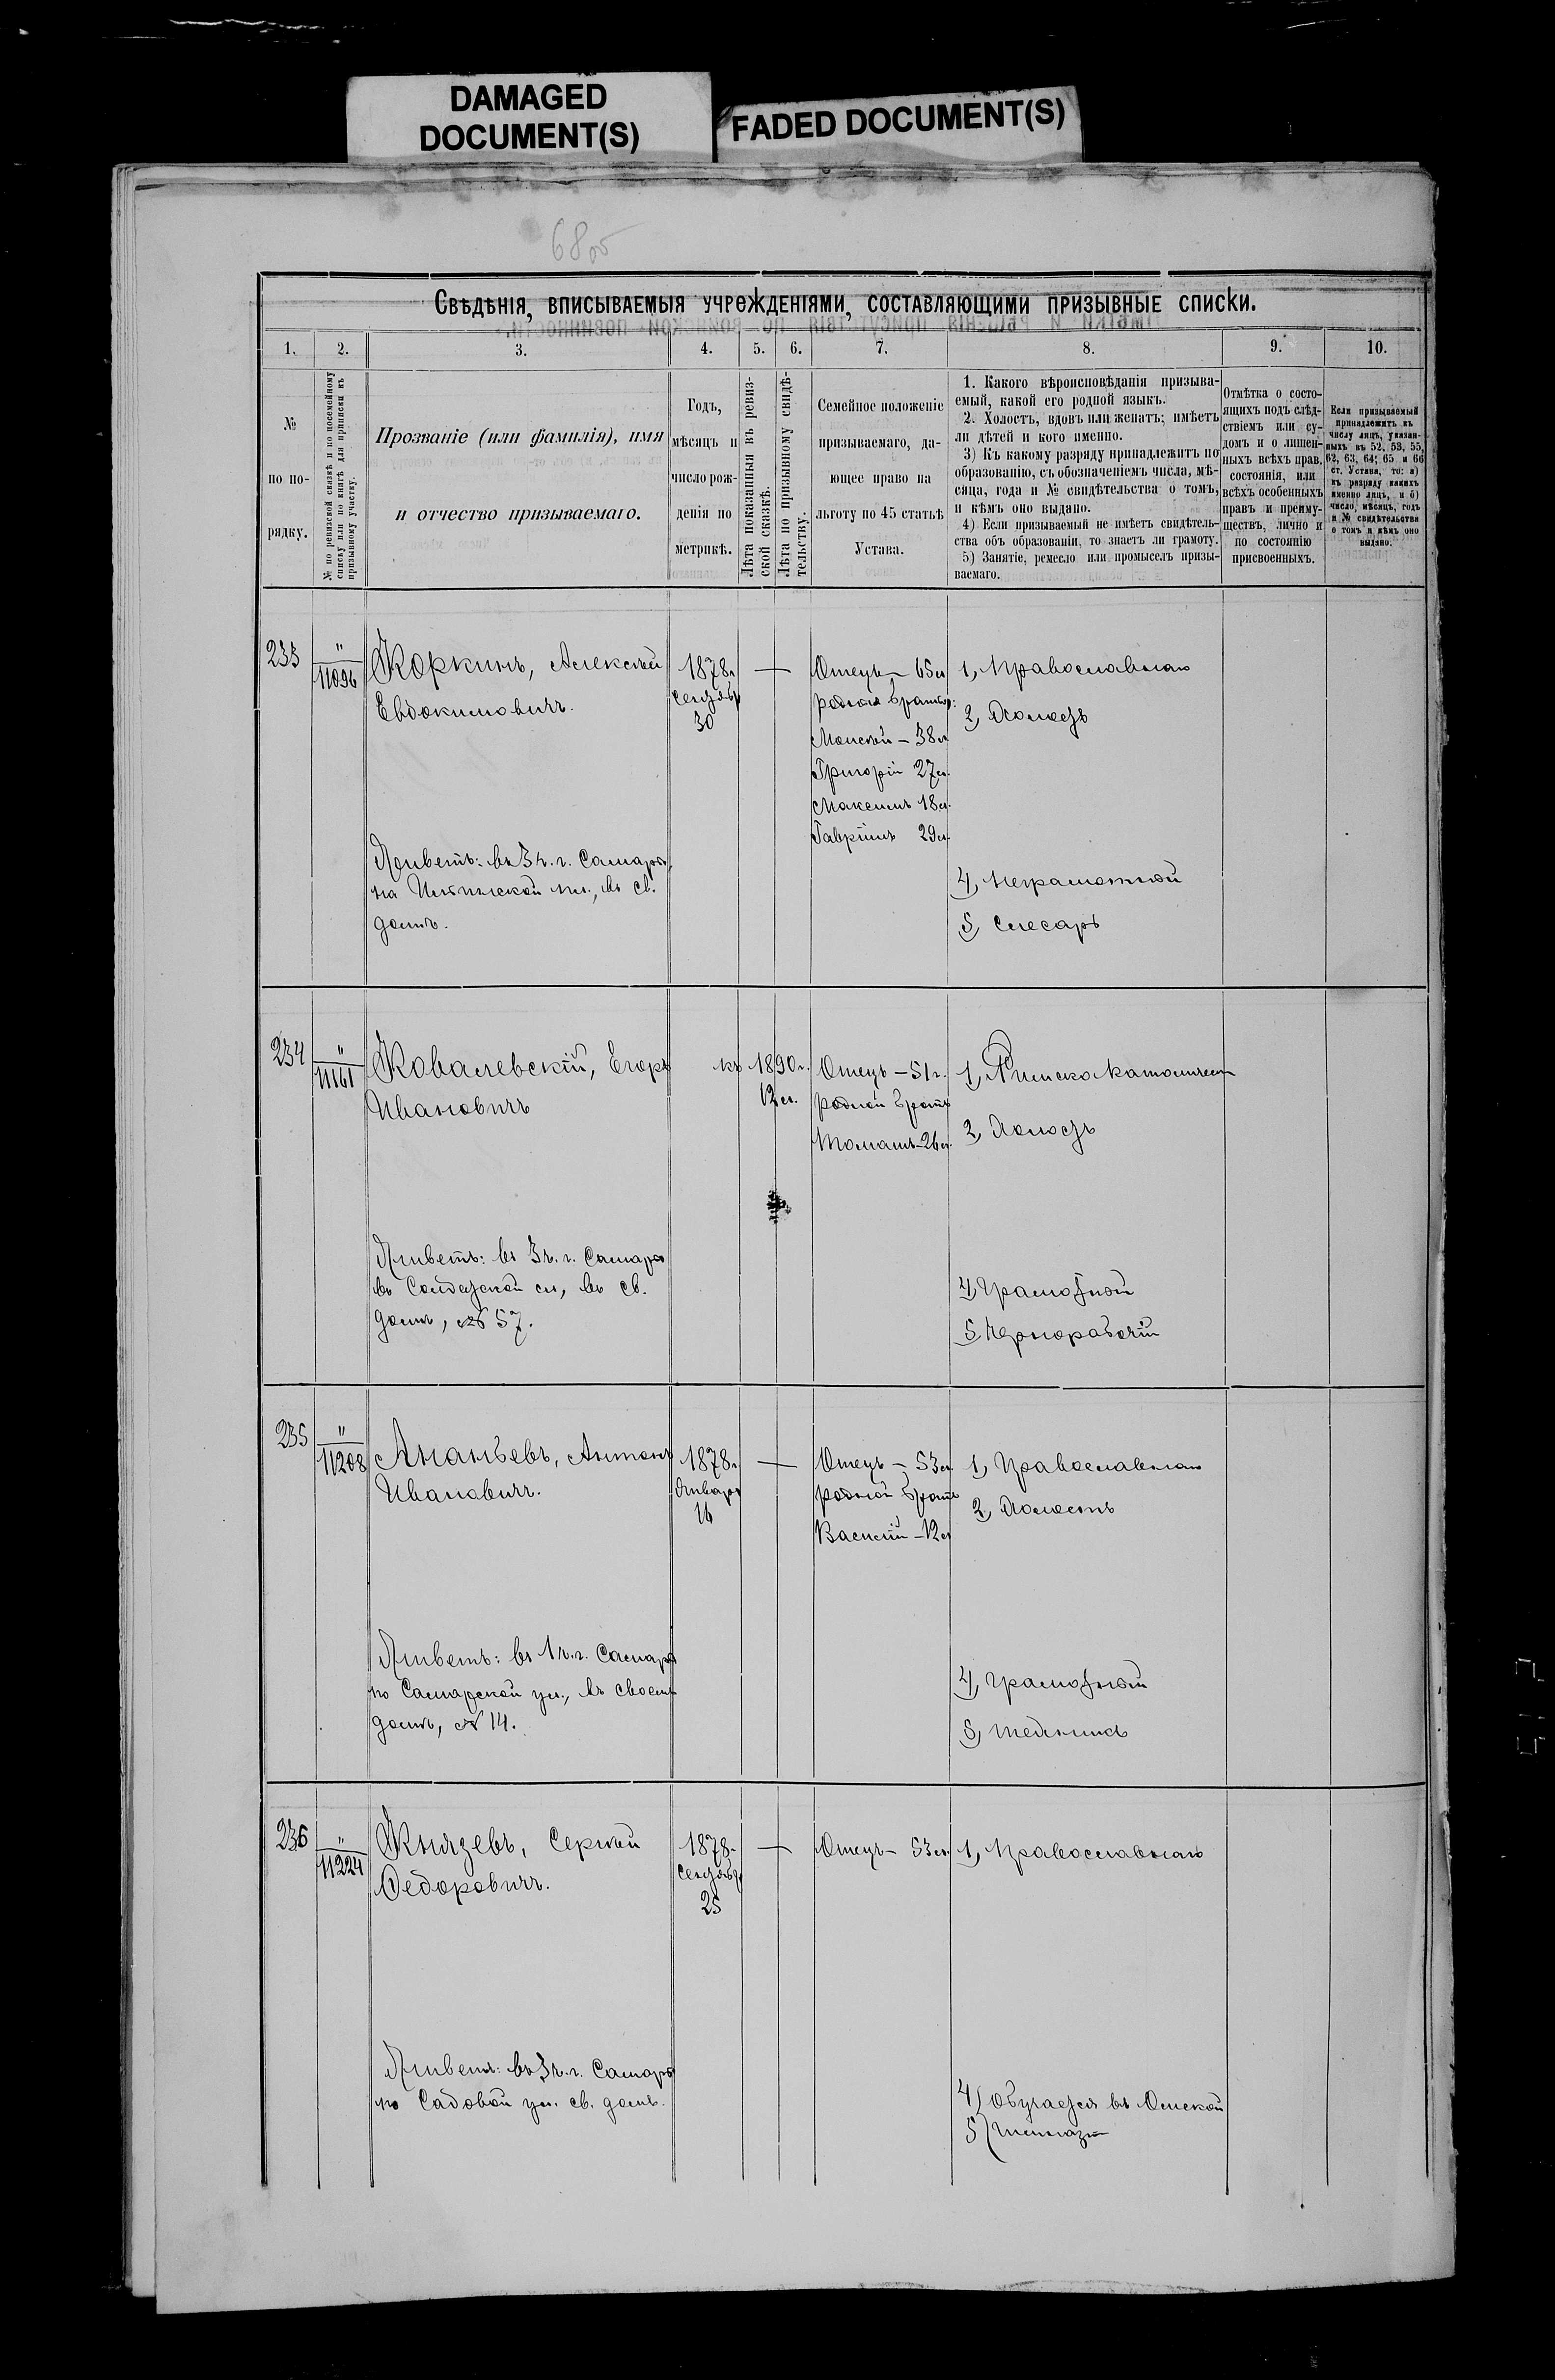 DAMAGED
DOCUMENT(S)
FADED DOCUMENT(S)
Свѣдѣнія, вписываемыя учрежденіями, составляющими призывные списки.
1. 2. 3. 4. 5. 6. 7. 8. 9. 10.
№
по по-
рядку.
№ по ревизской сказкѣ и по посемейному
списку или по книгѣ для приписки къ
призывному участку.
Прозваніе (или фамилія), имя
и отчество призываемаго.
Годъ,
мѣсяцъ и
число рож-
денія по
метрикѣ.
Лѣта показанныя въ ревиз-
ской сказкѣ.
Лѣта по призывному свидѣ-
тельству.
Семейное положеніе
призываемаго, да-
ющее право на
льготу по 45 статьѣ
Устава.
1. Какого вѣроисповѣданія призыва-
емый, какой его родной языкъ.
2. Холостъ, вдовъ или женатъ; имѣетъ
ли дѣтей и кого именно.
3) Къ какому разряду принадлежитъ по
образованію, съ обозначеніемъ числа, мѣ-
сяца, года и № свидѣтельства о томъ,
и кѣмъ оно выдано.
4) Если призываемый не имѣетъ свидѣтель-
ства объ образованіи, то знаетъ ли грамоту.
5) Занятіе, ремесло или промыселъ призы-
ваемаго.
Отмѣтка о состо-
ящихъ подъ слѣд-
ствіемъ или су-
домъ и о лишен-
ныхъ всѣхъ прав.
состоянія, или
всѣхъ особенныхъ
правъ и преиму-
ществъ, лично и
по состоянію
присвоенныхъ.
Если призываемый
принадлежитъ къ
числу лицъ, указан-
ныхъ въ 52, 53, 55,
62, 63, 64, 65 и 66
ст. Устава, то: а)
къ разряду какихъ
именно лицъ, и б)
число, мѣсяцъ, годъ
и № свидѣтельства
о томъ и кѣмъ оно
выдано.
233
"
11096
Коркинъ, Алексѣй
Евдокимовичъ.
1878г.
сентябр
30
Отецъ – 65 л
родные братья:
Моисей – 38 л.
Григорій 27 л.
Максимъ 18 л.
Гавріилъ 29 л.
1, Православнаго
2, Холостъ
Живетъ: въ 3 ч. г. Самары,
на ул., въ св.
домѣ.
4, Неграмотной
5, Слесарь
234
"
11161
Ковалевскій, Егоръ
Ивановичъ
къ 1890 г.
12 л.
Отецъ – 51 г.
родной братъ
Томашъ – 26 л.
1, Римско Католическ
2, Холостъ
Живетъ: въ 3 ч. г. Самары
въ Солдатской сл, въ св.
домѣ, № 57.
4, Грамотной
5, Чернорабочій
235
"
11208
Ананьевъ, Антонъ
Ивановичъ.
1878г.
Январь
16
Отецъ – 53 л.
родной братъ
Василій – 12 л
1, Православнаго
2, Холостъ
Живетъ: въ 1 ч. г. Самары
по Самарской ул., въ своемъ
домѣ, № 14.
4, Грамотной
5, Мѣдникъ
236
"
11224
Князевъ, Сергѣй
Ѳедоровичъ.
1878г.
Сентябр
25
Отецъ – 53 л.
1, Православнаго
Живетъ: въ 3 ч. г. Самары
по Садовой ул. св. домъ.
4) Обучается въ Омской
5) Гимназіи